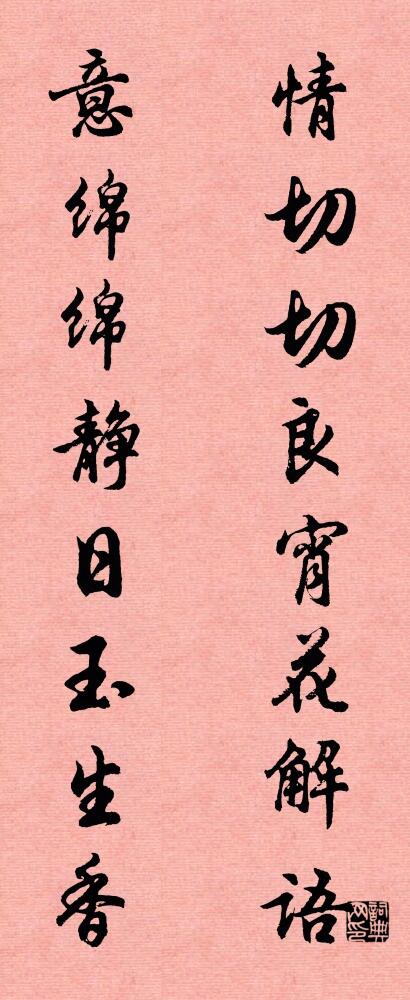 情切切良宵花解语
意绵绵静日玉生香
詞典网印